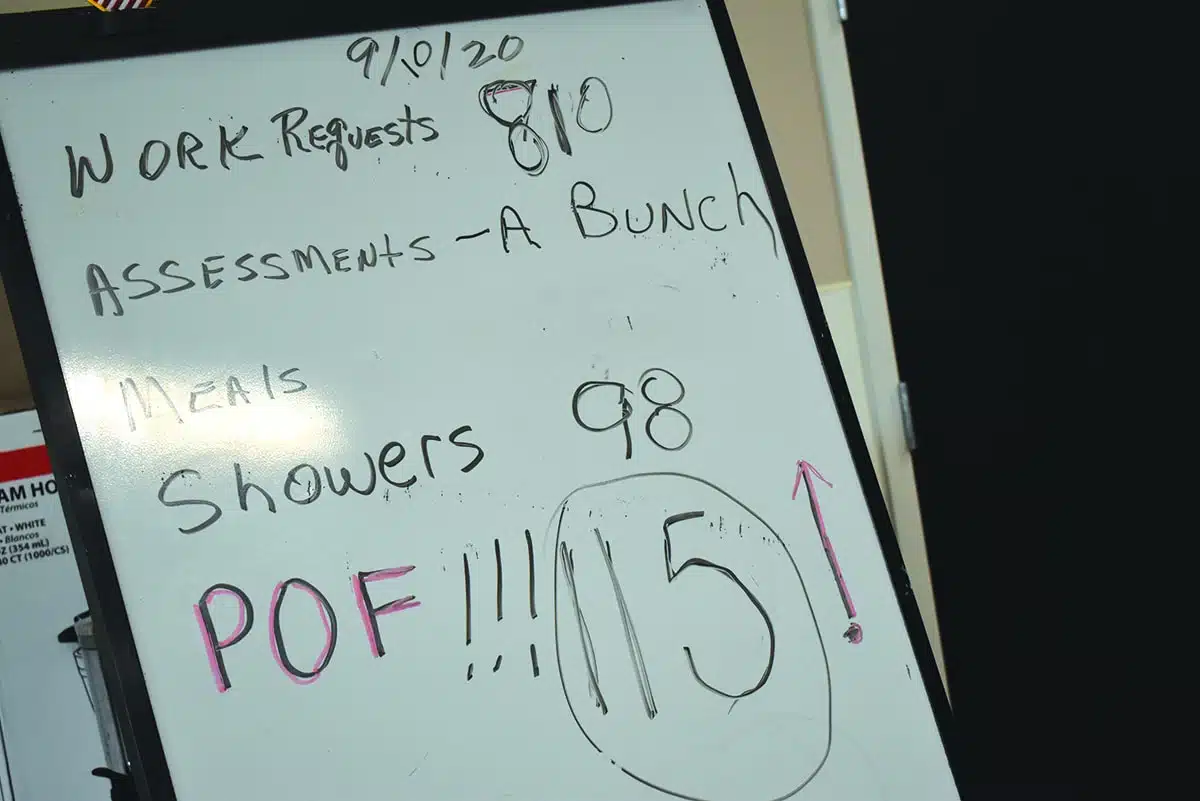 9/10/20
WORK REQUESTS 810
ASSESSMENTS - A BUNCH
MEALS
Showers 98
POF !!! 115 !
AM HO
Térmicos
AT • WHITE
• Blancos
Z (354 mL)
00 CT (1000/CS)